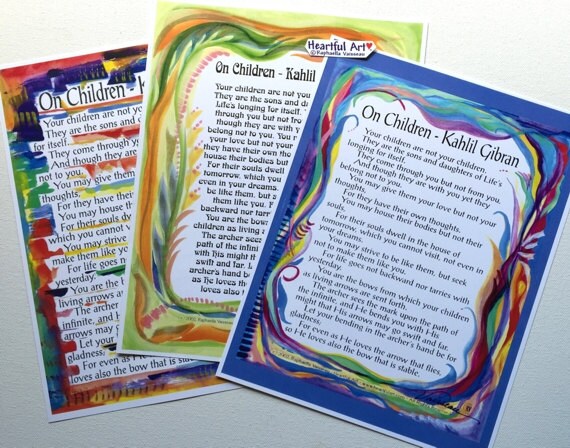 Heartful Art
by Raphaella Vaisseau
On Children - K
Your children are not you
They are the sons and
for itself.
They come through you
And though they are with
not to you.
You may give them
thoughts,
For they have their own
You may house their
For their souls dwell
which you cannot visit,
You may strive to be
make them like you.
For life goes not
yesterday.
You are the bows
living arrows are
The archer sees
infinite, and He
arrows may go
Let your bending
gladness;
For even as He
loves also the bow
On Children - Kahlil
Your children are not you
They are the sons and da
Life's longing for itself. T
through you but not from
though they are with y
belong not to you. You
your love but not your
they have their own tho
house their bodies but
For their souls dwell in
tomorrow, which you
even in your dreams.
be like them, but s
them like you. F
backward nor tarr
You are the bow
children as living a
The archer sees
path of the infinite
with His might th
swift and far. L
archer's hand b
as He loves th
loves also
On Children - Kahlil Gibran
Your children are not your children.
They are the sons and daughters of Life's
longing for itself.
They come through you but not from you.
And though they are with you yet they
belong not to you.
You may give them your love but not your
thoughts,
For they have their own thoughts.
You may house their bodies but not their
souls,
For their souls dwell in the house of
tomorrow, which you cannot visit, not even in
your dreams.
You may strive to be like them, but seek
not to make them like you.
For life goes not backward nor tarries with
yesterday.
You are the bows from which your children
as living arrows are sent forth.
The archer sees the mark upon the path of
the infinite, and He bends you with His
might that His arrows may go swift and far.
Let your bending in the archer's hand be for
gladness;
For even as He loves the arrow that flies,
so He loves also the bow that is stable.